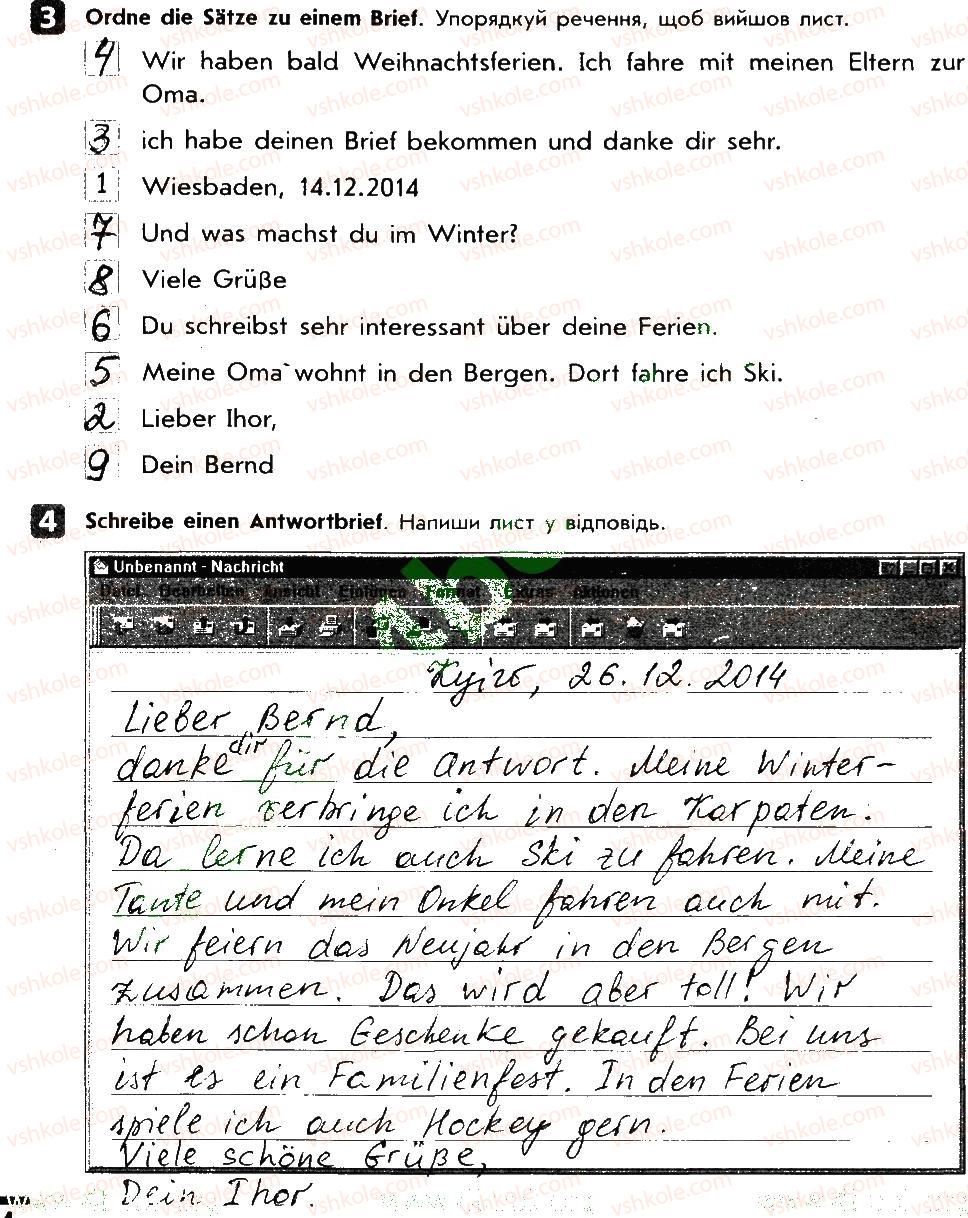 3 Ordne die Sätze zu einem Brief. Упорядкуй речення, щоб вийшов лист.
4 Wir haben bald Weihnachtsferien. Ich fahre mit meinen Eltern zur
Oma.
3 ich habe deinen Brief bekommen und danke dir sehr.
1 Wiesbaden, 14.12.2014
7 Und was machst du im Winter?
8 Viele Grüße
6 Du schreibst sehr interessant über deine Ferien.
5 Meine Oma wohnt in den Bergen. Dort fahre ich Ski.
2 Lieber Ihor,
9 Dein Bernd
4 Schreibe einen Antwortbrief. Напиши лист у відповідь.
Unbenannt - Nachricht
Datei Bearbeiten Ansicht Einfügen Format Extras Aktionen
26.12.2014
Lieber Bernd,
danke dir für die Antwort. Meine Winter-
ferien verbringe ich in den Karpaten.
Da lerne ich auch Ski zu fahren. Meine
Tante und mein Onkel fahren auch mit.
Wir feiern das Neujahr in den Bergen
zusammen. Das wird aber toll! Wir
haben schon Geschenke gekauft. Bei uns
ist es ein Familienfest. In den Ferien
spiele ich auch Hockey gern.
Viele schöne Grüße,
Dein Ihor.
vshkole.com